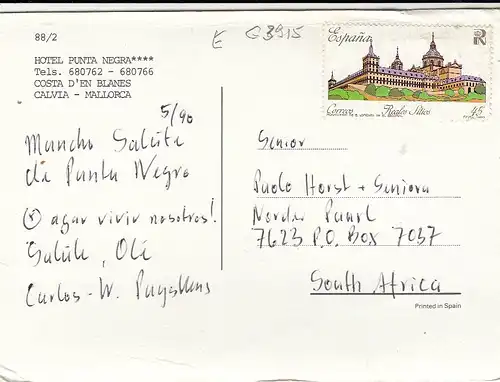 88/2
E G3915
HOTEL PUNTA NEGRA****
Tels. 680762 - 680766
COSTA D'EN BLANES
CALVIA - MALLORCA
España
Correos Reales Sitios 45
5/90
Muncho Salute
di Punta Negro
agar viviv nosotros!
Salute, Olé
Carlos - W.
Senior
Paolo Horst + Seniora
Norder Paarl
7623 P.O. Box 7037
South Africa
Printed in Spain